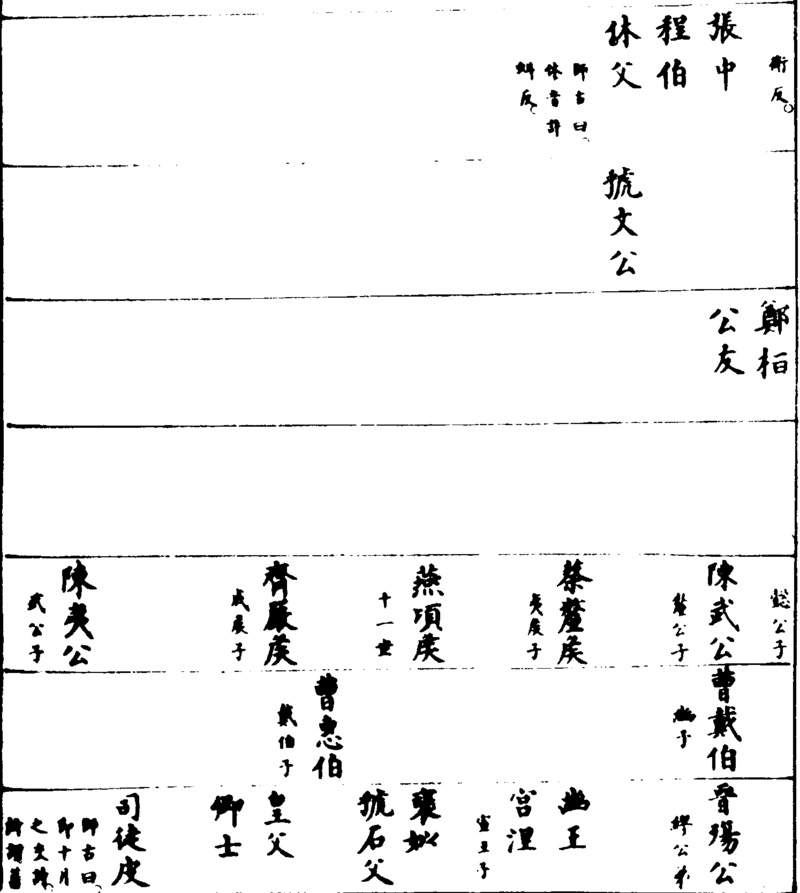 衛反。
張中
程伯
休父
師古曰、
休音許
虯反。
虢文公
鄭柏
公友
懿公子
陳武公
釐公子
蔡釐侯
夷侯子
燕頃侯
十一世
齊嚴侯
成侯子
陳夷公
武公子
曹戴伯
幽子
曹惠伯
戴伯子
晉殤公
繆公弟
幽王
宮湼
宣王子
褒姒
虢石父
皇父
卿士
司徒皮
師古曰、
即十月
之交詩、
所謂蕃